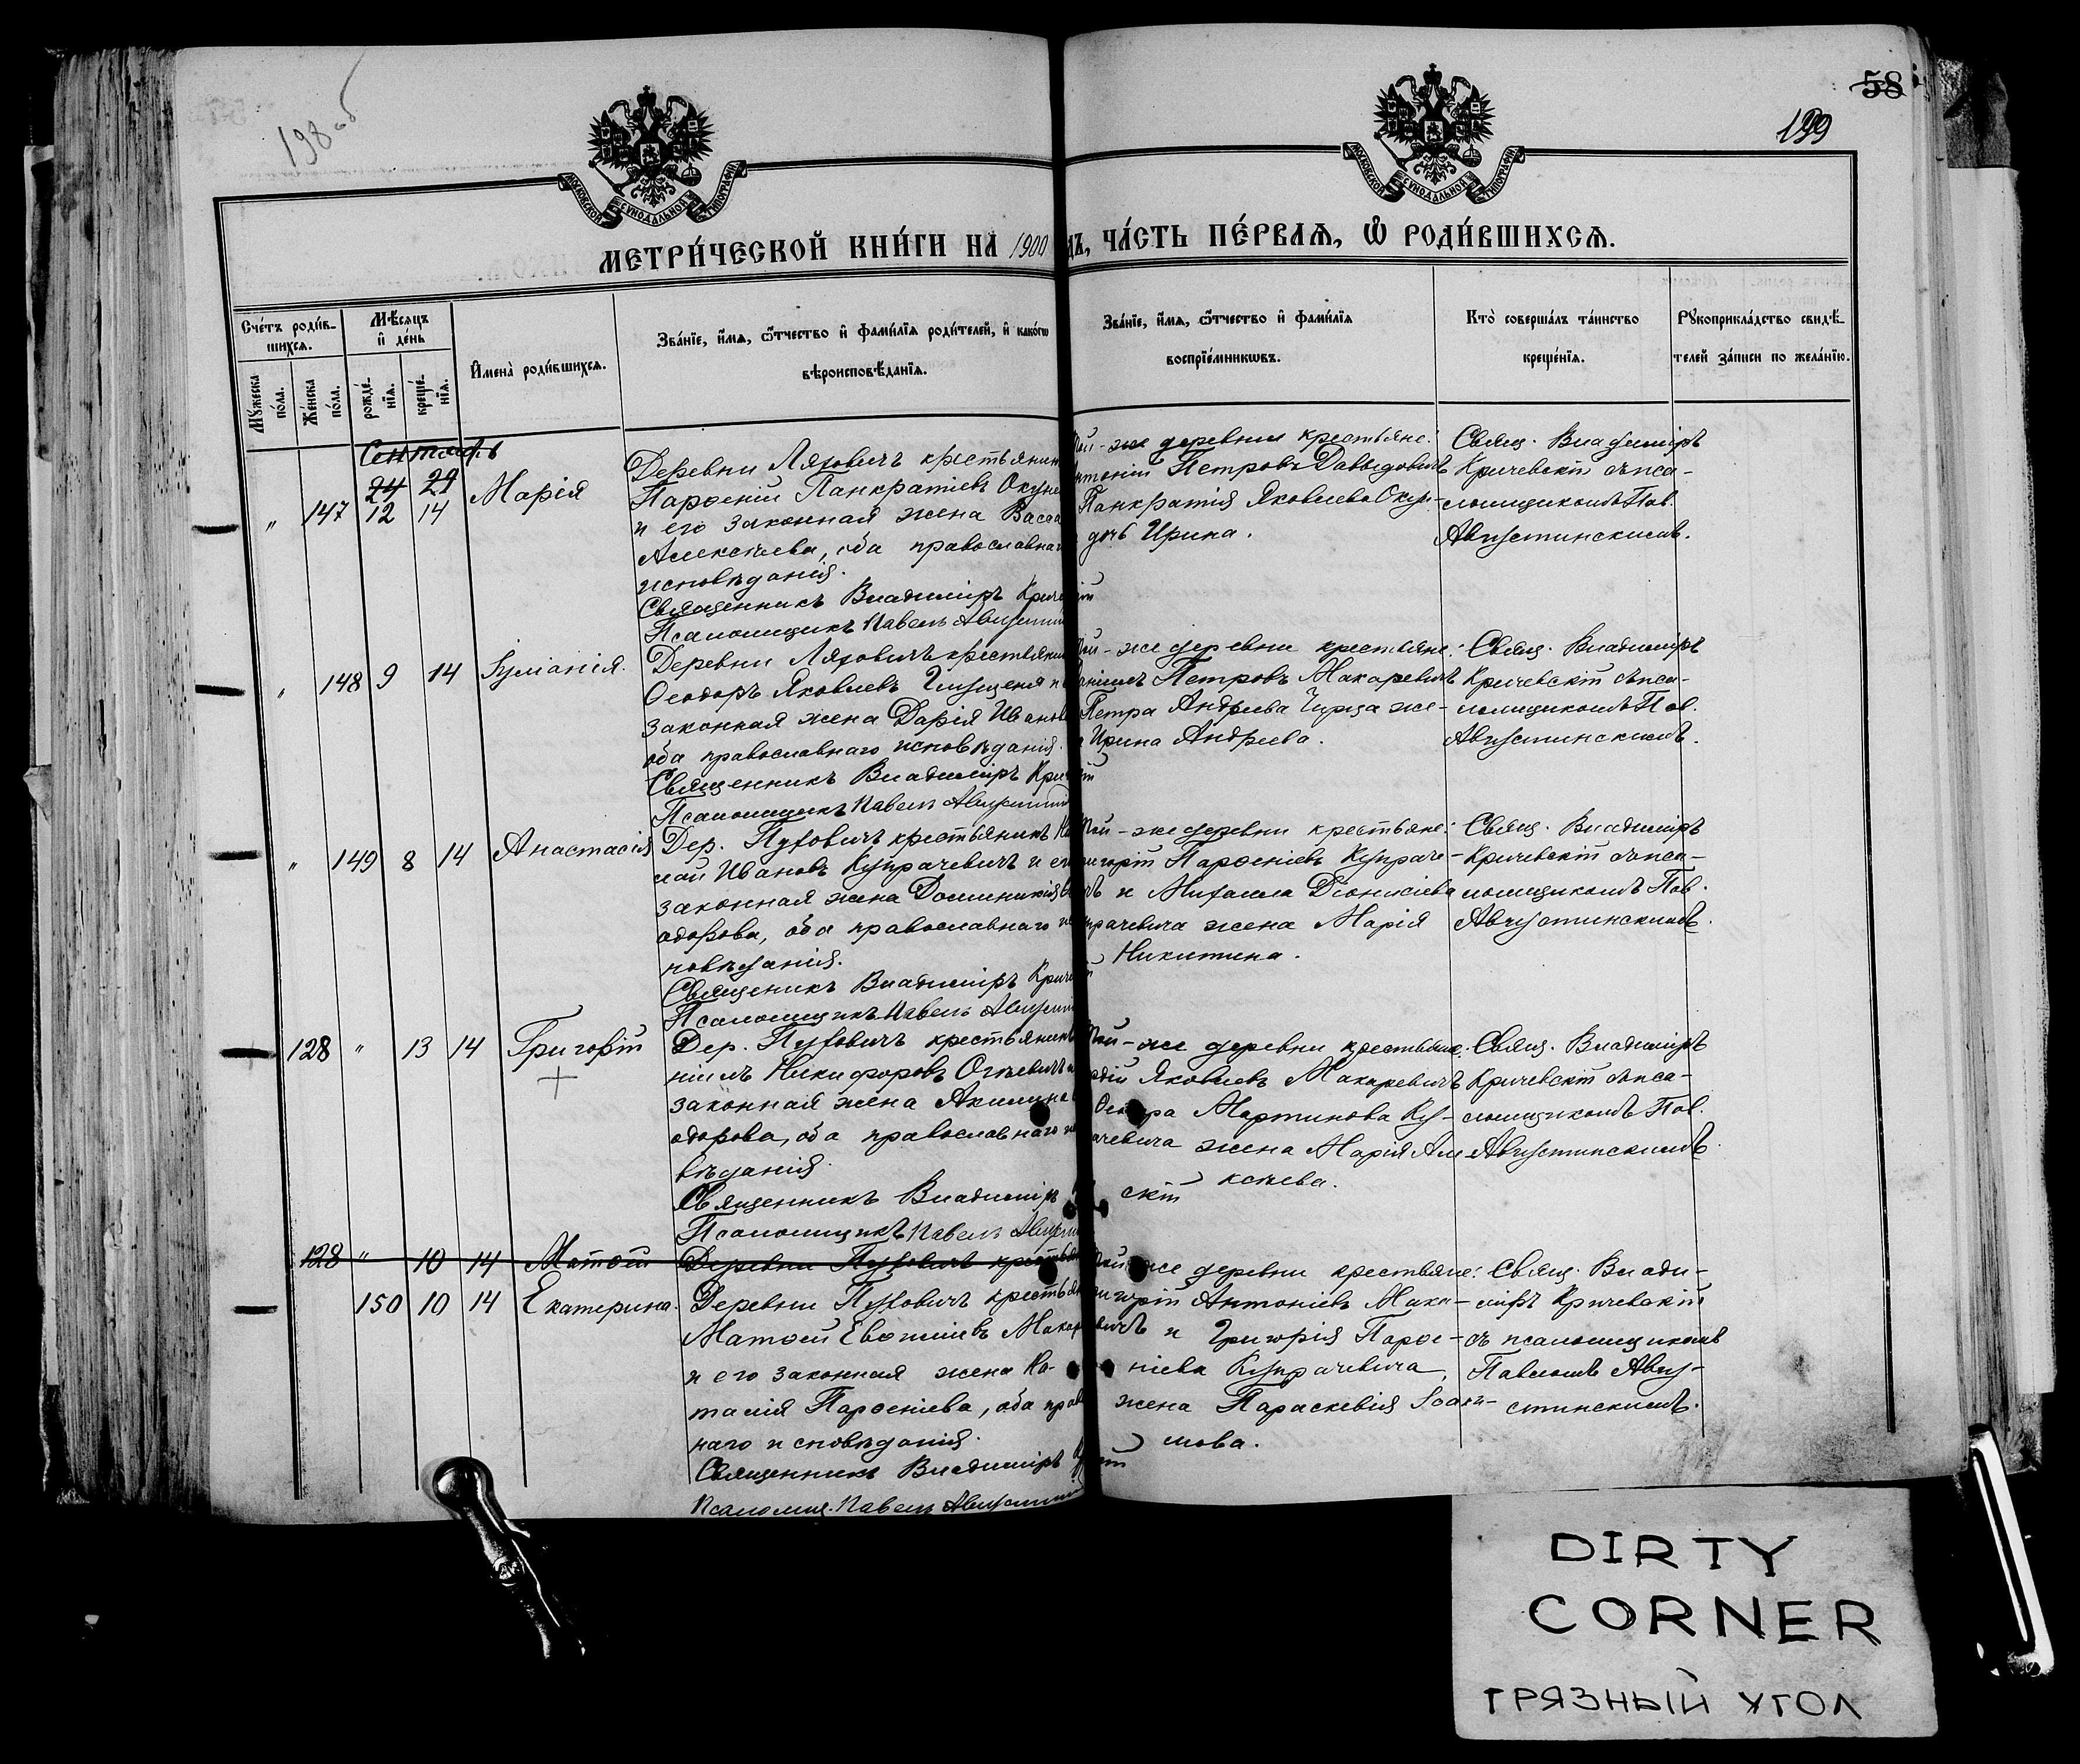 198 об
58
199
МОСКОВСКОЙ СѴНОДАЛЬНОЙ ТИПОГРАФІИ
МОСКОВСКОЙ СѴНОДАЛЬНОЙ ТИПОГРАФІИ
МЕТРИ́ЧЕСКОЙ КНИ́ГИ НА 1900 ДЪ, ЧА́СТЬ ПЕ́РВАЯ, Ѽ РОДИ́ВШИХСЯ.
Сче́тъ роди́в-
шихся.
Мꙋжеска
по́ла.
Же́нска
по́ла.
Мѣ́сяцъ
и҆ де́нь
рожде́-
нїя.
креще́-
нїя.
И҆мена̀ роди́вшихся.
Зва́нїе, и҆́мя, ѻ҆́тчество и҆ фами́лїя роди́телей, и҆ како́гѡ
вѣроисповѣ́данїя.
Зва́нїе, и҆́мя, ѻ҆́тчество и҆ фами́лїя
воспрїе́мникѡвъ.
Кто̀ соверша́лъ та́инство
креще́нїя.
Рꙋкоприкла́дство свидѣ́-
телей за́писи по жела́нїю.
Сентябрь
24 29
" 147 12 14 Марія
Деревни Ляховичъ крестьянин
Парѳеній Панкратіевъ Окуне
и его законная жена Васса
Алексѣева, оба православнаг
исповѣданія.
Священникъ Владиміръ Крич
Псаломщикъ Павелъ Августин
той-же деревни крестьяне:
Антоній Петровъ Давыдовичъ
Панкратія Яковлева Окун-
дочь Ирина.
Свящ. Владиміръ
Кричевскій съ пса-
ломщикомъ Пав.
Августинскимъ.
" 148 9 14 Іуліанія.
Деревни Ляховичъ крестьянин
Ѳеодоръ Яковлевъ
законная жена Дарія Иванов
оба православнаго исповѣданія.
Священникъ Владиміръ Крич
Псаломщикъ Павелъ Августин
той-же деревни крестьяне:
Даніилъ Петровъ Макаревичъ
Петра Андреева же-
Ирина Андреева.
Свящ. Владиміръ
Кричевскій съ пса-
ломщикомъ Пав.
Августинскимъ.
" 149 8 14 Анастасія
Дер. Пуховичъ крестьянинъ
Ивановъ Купрачевичъ и его
законная жена Доминикія Ѳе
одорова, оба православнаго ис
повѣданія.
Священикъ Владиміръ Крич
Псаломщикъ Павелъ Августин
той-же деревни крестьяне:
Григорій Парѳеніевъ Купраче-
въ и Михаила Діонисіева
Купрачевича жена Марія
Никитина.
Свящ. Владиміръ
Кричевскій съ пса-
ломщикомъ Пав.
Августинскимъ.
128 " 13 14 Григорій
+
Дер. Пуховичъ крестьянинъ
ніилъ Никифоровъ Огіевичъ и
законная жена Акилина Ѳе
одорова, оба православнаго испо
вѣданія.
Священникъ Владиміръ
Псаломщикъ Павелъ Августин
той-же деревни крестьяне:
Яковлевъ Макаревичъ
Ѳеодора Мартинова Ку-
прачевича жена Марія Але
ксѣева.
скій
Свящ. Владиміръ
Кричевскій съ пса-
ломщикомъ Пав.
Августинскимъ.
128 " 10 14 Матѳей Деревни Пуховичъ крестьян
150 10 14 Екатерина.
Деревни Пуховичъ крестьян
Матѳей Евѳиміевъ Макаревичъ
и его законная жена На-
талія Парѳеніева, оба прав
наго исповѣданія.
Священникъ Владиміръ
Псаломщ. Павелъ Августин
той же деревни крестьяне:
Григорій Антоніевъ Мака-
ревичъ и Григорія Парѳе-
ніева Купрачевича,
жена Параскевія Іоаки-
мова.
Свящ. Влади-
міръ Кричевскій
съ псаломщикомъ
Павломъ Авгу-
стинскимъ.
DIRTY
CORNER
ГРЯЗНЫЙ УГОЛ